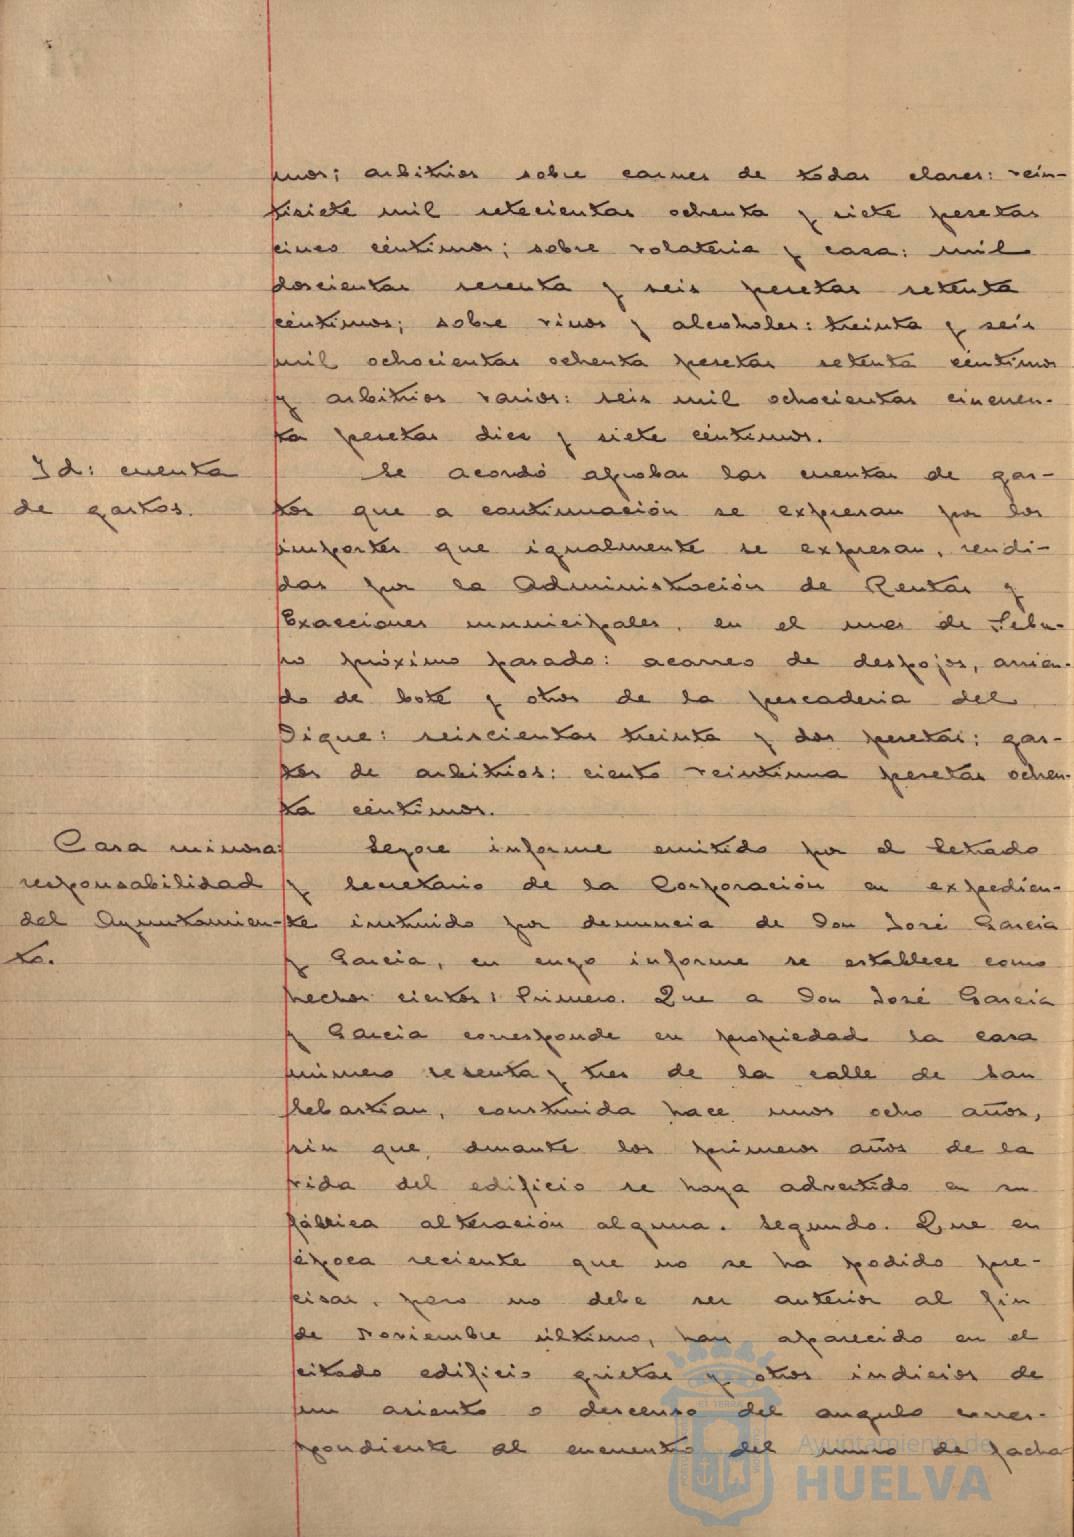 mos; arbitrios sobre carnes de todas clases: vein-
tisiete mil setecientas ochenta y siete pesetas
cinco céntimos; sobre volateria y casa: mil
doscientas sesenta y seis pesetas setenta
céntimos; sobre vinos y alcoholes: treinta y seis
mil ochocientas ochenta pesetas setenta céntimos
y arbitrios varios: seis mil ochocientas cincuen-
ta pesetas diez y siete céntimos.
Id: cuenta
de gastos.
Se acordó aprobar las cuentas de gas-
tos que a continuación se expresan por los
importes que igualmente se expresan, rendi-
das por la Administración de Rentas y
Exacciones municipales, en el mes de Febre-
ro próximo pasado: acarreo de despojos, arrien-
do de bote y otros de la pescaderia del
Dique: seiscientas treinta y dos pesetas; gas-
tos de arbitrios: ciento veintiuna pesetas ochen-
ta céntimos.
Casa minosa:
responsabilidad
del Ayuntamien-
to.
Leyose informe emitido por el Letrado
y Secretario de la Corporación en expedien-
te instruido por denuncia de Don José García
y García, en cuyo informe se establece como
hechos ciertos: Primero. Que a Don José García
y García corresponde en propiedad la casa
número sesenta y tres de la calle de San
Sebastian, construida hace unos ocho años,
sin que, durante los primeros años de la
vida del edificio se haya advertido en su
fábrica alteración alguna. Segundo. Que en
época reciente que no se ha podido pre-
cisar, pero no debe ser anterior al fin
de Noviembre último, han aparecido en el
citado edificio grietas y otros indicios de
un asiento o descenso del angulo corres-
pondiente al encuentro del muro de facha
Ayuntamiento de
HUELVA